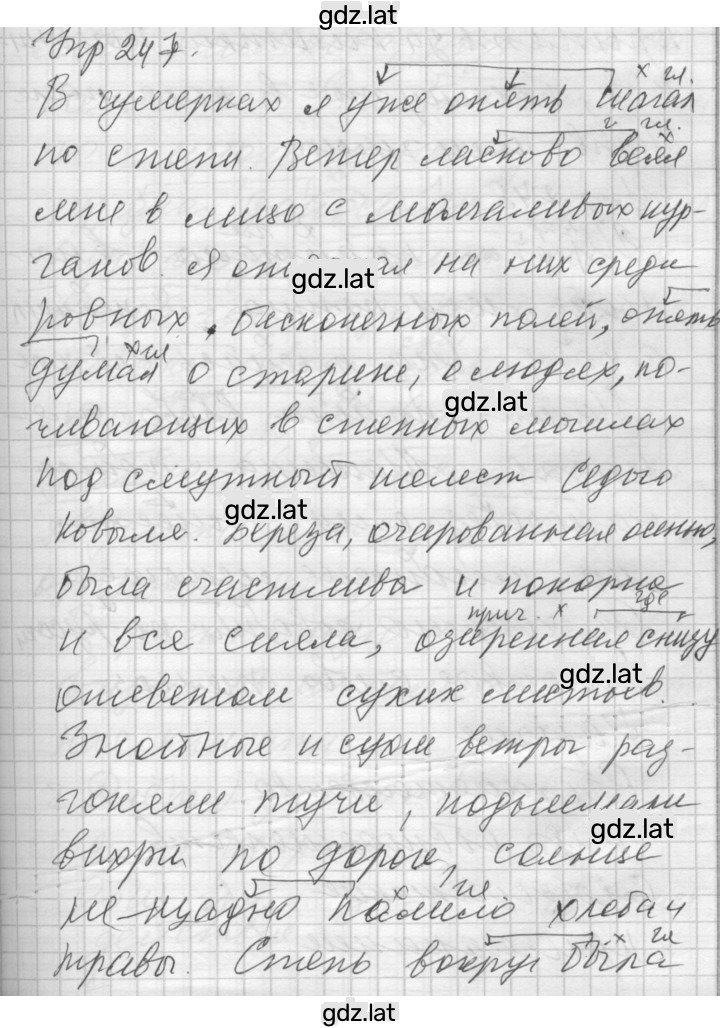 gdz.lat
Упр 247.
х гл.
В сумерках я уже опять шагал
г гл.
х
по степи. Ветер ласково веял
мне в лицо с молчаливых кур-
ганов. Я
gdz.lat
на них среди
ровных, бесконечных полей, опять
х гл
думал о старине, о людях, по-
gdz.lat
чивающих в степных могилах
под смутный шелест седого
gdz.lat
ковыля. Береза, очарованная осенью,
была счастлива и покорна
прич. х где
и вся сияла, озаренная снизу
gdz.lat
отсветом сухих листьев.
Знойные и сухие ветры раз-
гоняли тучи, поднимали
gdz.lat
вихри по дороге, солнце
х гл.
не-щадно палило хлеба и
х гл
травы. Степь вокруг была
gdz.lat